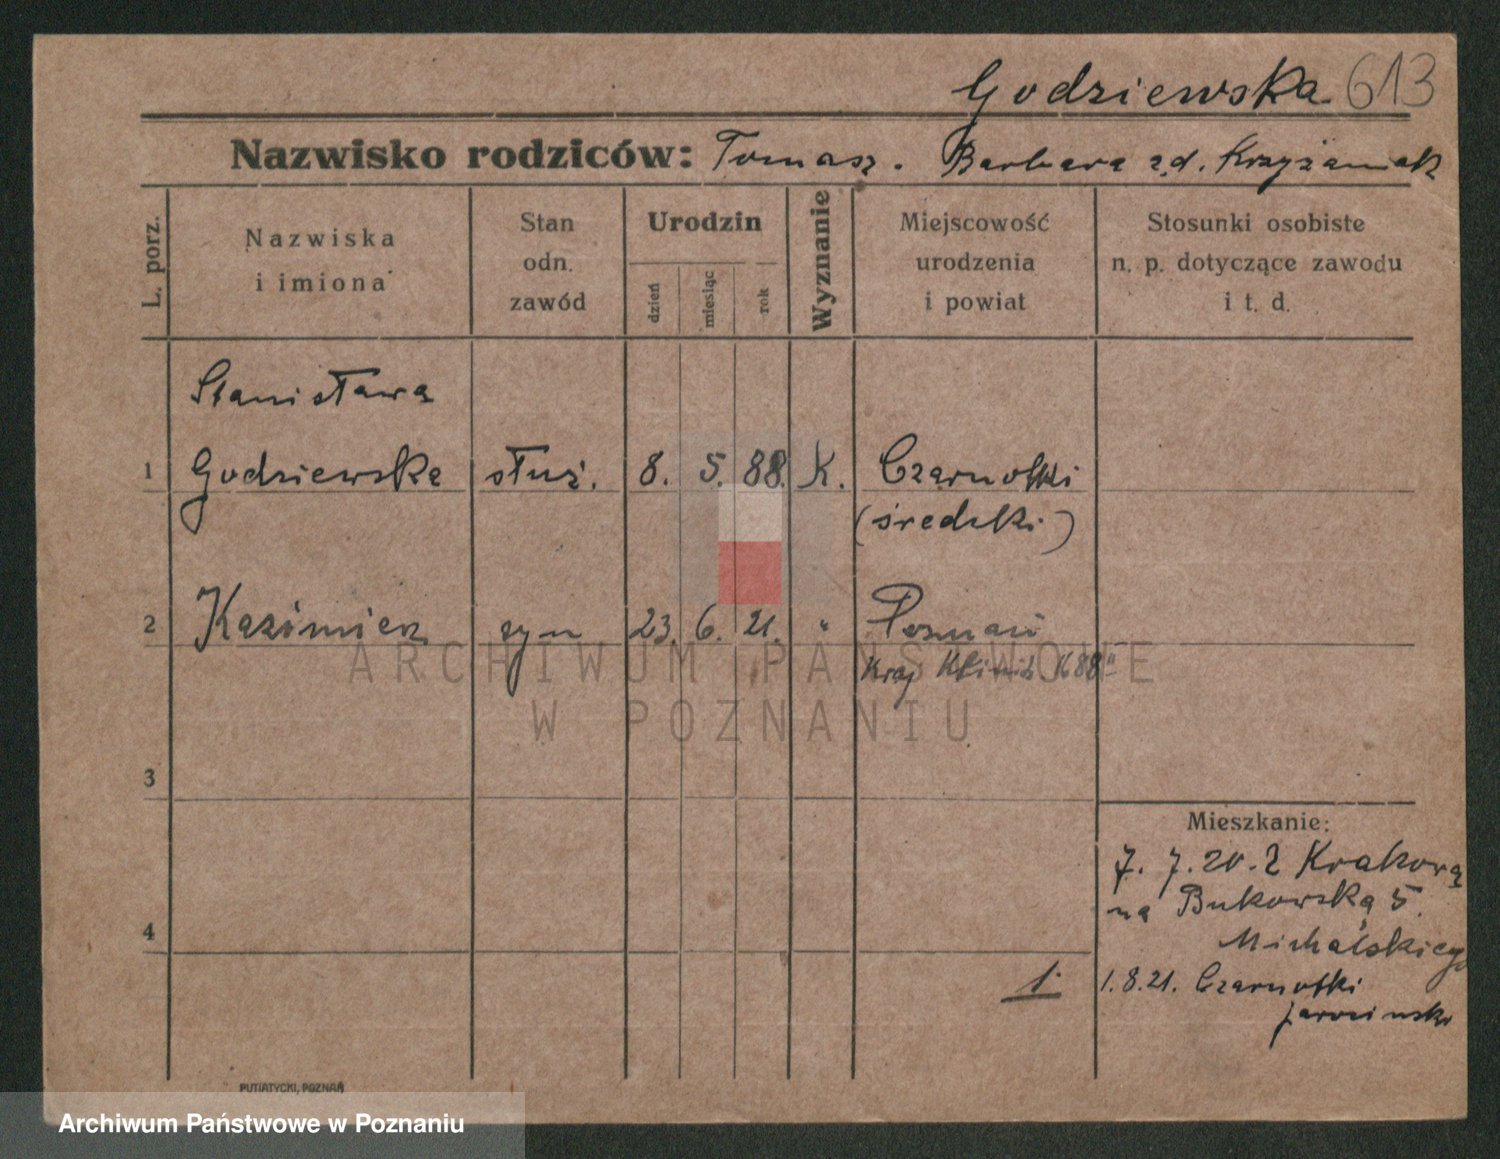 Godziewska 613
Nazwisko rodziców: Tomasz. Barbara z d. Krzyżaniak
L. porz.
Nazwiska
i imiona
Stan
odn.
zawód
Urodzin
dzień
miesiąc
rok
Wyznanie
Miejscowość
urodzenia
i powiat
Stosunki osobiste
n. p. dotyczące zawodu
i t. d.
Stanisława
1 Godziewska służ. 8. 5. 88. K. Czarnotki
(średzki)
2 Kazimierz syn 23. 6. 21. " Poznań
Kraj Klinik 688
3
Mieszkanie:
7. 7. 20. z Krakowa
na Bukowską 5.
Michalskiego
4
1. 1.8.21. Czarnotki
jarocinski
PUTIATYCKI, POZNAŃ
ARCHIWUM PAŃSTWOWE
W POZNANIU
Archiwum Państwowe w Poznaniu